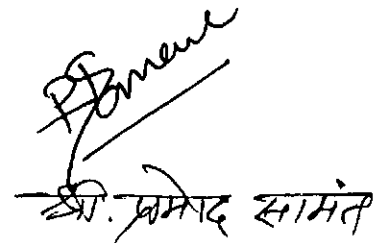 श्री. प्रमोद सामंत